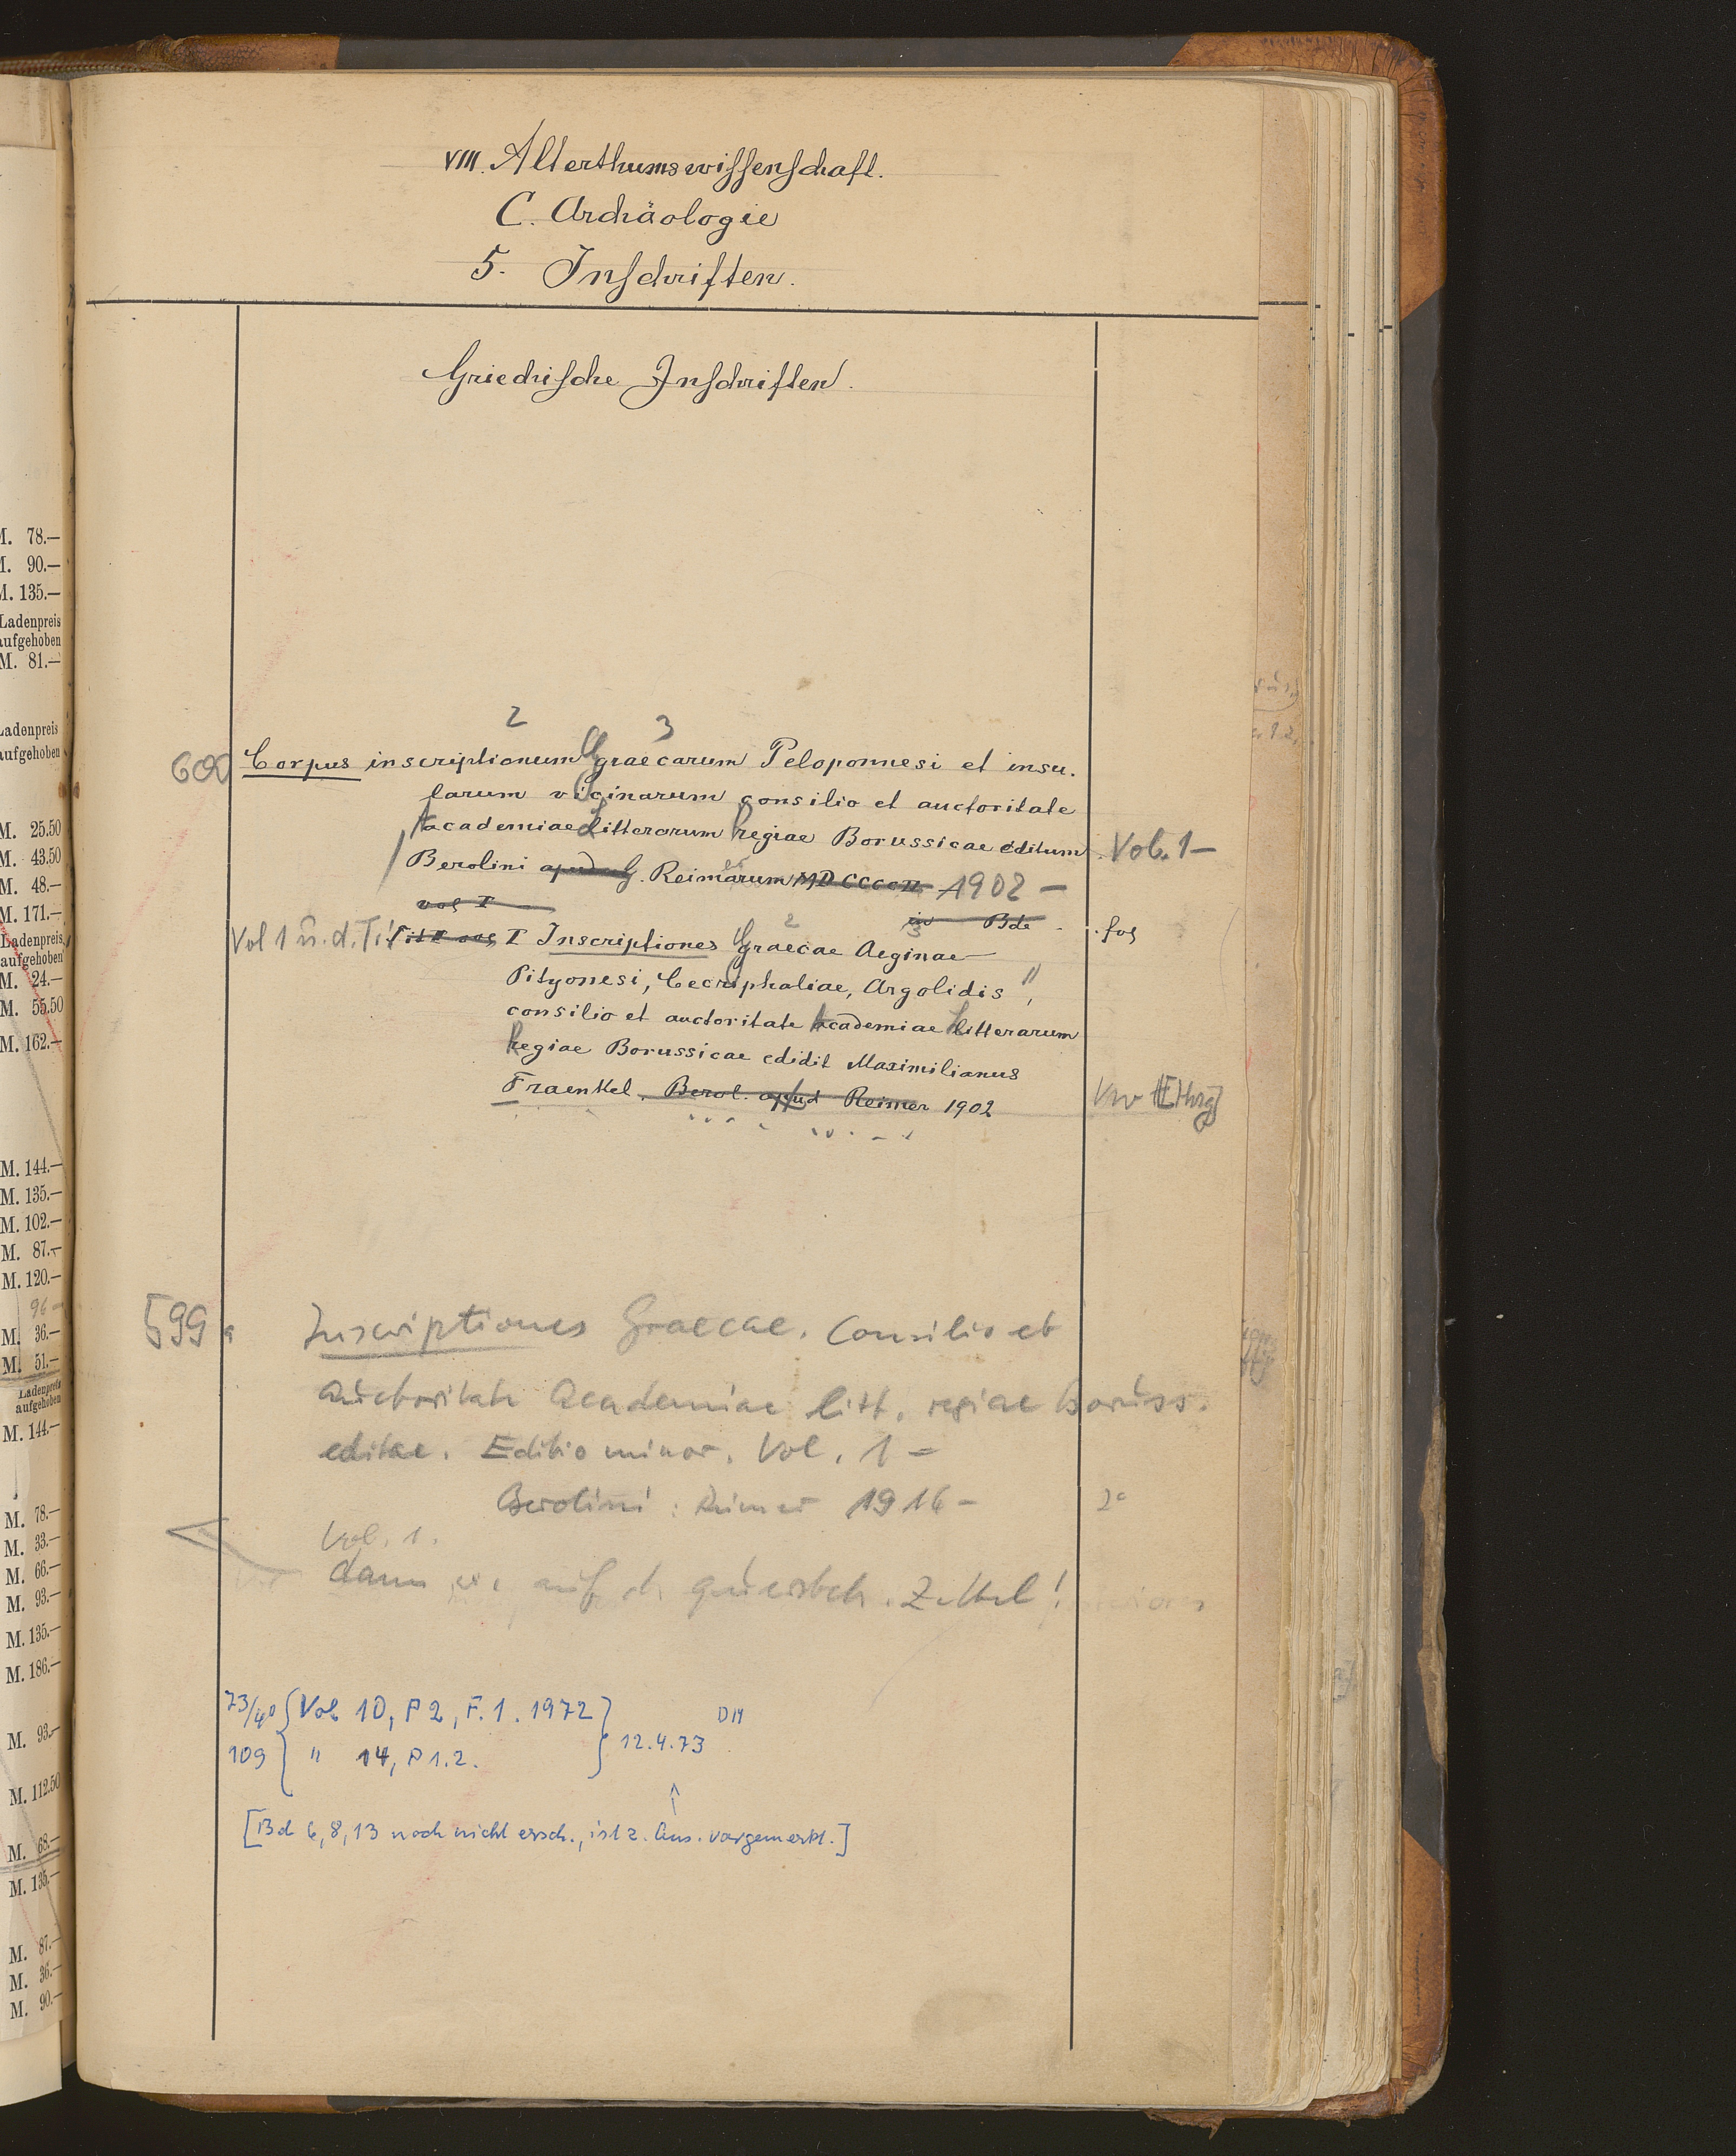 VIII. Alterthumswissenschaft.
C. Archäologie
5. Inschriften.
Griechische Inschriften.
2 3
600 Corpus inscriptionum Graecarum Peloponnesi et insu-
larum vicinarum consilio et auctoritate
academiae litterarum regiae Borussicae editum Vol. 1 -
Berolini apud G. Reimarum MDCCCCII 1902 -
vol I
in Bde fol
Vol 1 u. d. Tit: Tit: vol I Inscriptiones Graecae Aeginae
Pityonesi, Cecryphaliae, Argolidis,
consilio et auctoritate academiae litterarum
regiae Borussicae edidit Maximilianus
Fraenkel. Berol. apud Reimer 1902
Vw [Hrg]
599 a Inscriptiones Graecae. Consilio et
auctoritate Academiae litt. regiae Boruss.
editae. Editio minor. Vol. 1 =
Berolini: Reimer 1916 - 2°
Vol. 1.
dann auf d. Zettel!
73/4° Vol 10, P 2, F. 1. 1972 DM
109 " 14, P 1.2. 12.4.73
[Bd 6, 8, 13 noch nicht ersch., ist z. Ans. vorgemerkt.]
M. 78.—
M. 90.—
M. 135.—
Ladenpreis
aufgehoben
M. 81.—
Ladenpreis
aufgehoben
M. 25.50
M. 43.50
M. 48.—
M. 171.—
Ladenpreis
aufgehoben
M. 24.—
M. 55.50
M. 162.—
M. 144.—
M. 135.—
M. 102.—
M. 87.—
M. 120.—
96 —
M. 36.—
M. 51.—
Ladenpreis
aufgehoben
M. 144.—
M. 78.—
M. 33.—
M. 66.—
M. 93.—
M. 135.—
M. 186.—
M. 93.—
M. 112.50
M. 68.—
M. 135.—
M. 87.—
M. 36.—
M. 90.—